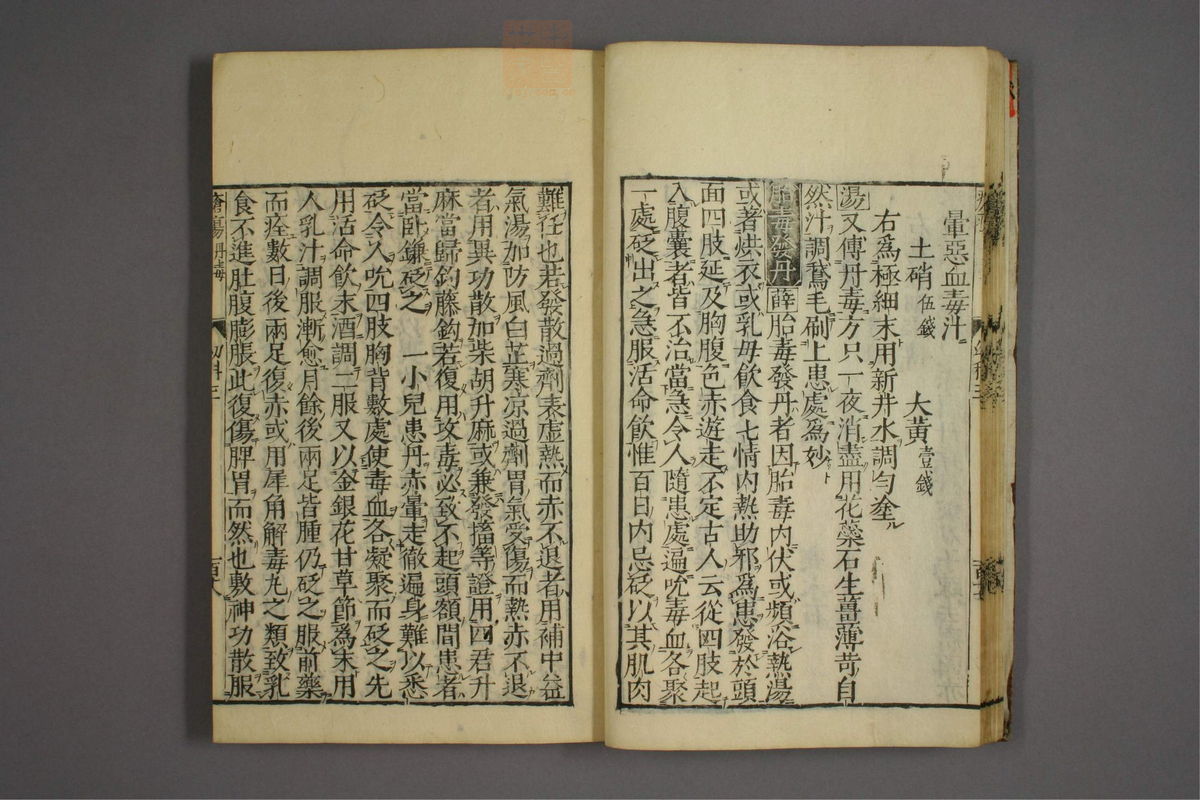 暈惡血毒汁
土硝伍錢　大黃壹錢
右爲極細末用新井水調勻塗
湯又傅丹毒方只一夜消盡用花蘂石生薑薄苛自
然汁調鵞毛刷上患處爲妙
胎毒發丹 薛 胎毒發丹者因胎毒內伏或頻浴熱湯
或著烘衣或乳母飲食七情內熱助邪爲患發於頭
面四肢延及胸腹色赤遊走不定古人云從四肢起
入腹囊者皆不治當急令人隨患處遍吮毒血各聚
一處砭出之急服活命飲惟百日內忌砭以其肌肉
難任也若發散過劑表虛熱而赤不退者用補中益
氣湯加防風白芷寒凉過劑胃氣受傷而熱赤不退
者用異功散加柴胡升麻或兼發搐等證用四君升
麻當歸鈎藤鈎若復用攻毒必致不起頭額間患者
當臥鎌砭之　一小兒患丹赤暈走徹遍身難以悉
砭令人吮四肢胸背數處使毒血各凝聚而砭之先
用活命飲末酒調二服又以金銀花甘草節爲末用
人乳汁調服漸愈月餘後兩足皆腫仍砭之服前藥
而痊數日後兩足復赤或用犀角解毒丸之類致乳
食不進肚腹膨脹此復傷脾胃而然也敷神功散服
瘡瘍 丹毒　幼科三